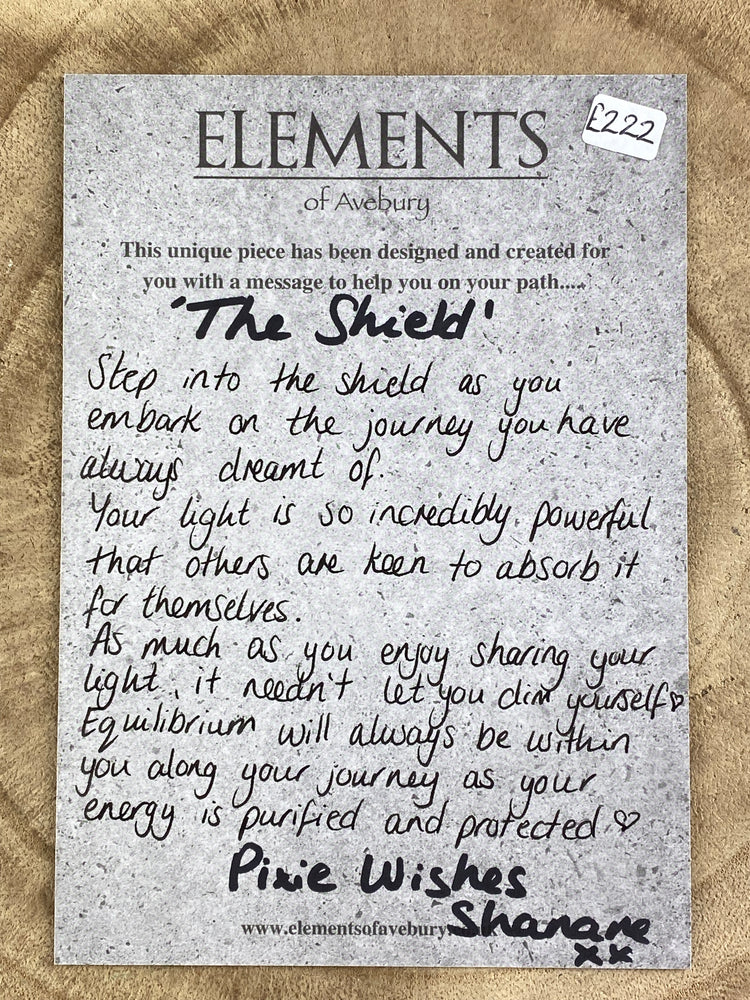 ELEMENTS
£222
of Avebury
This unique piece has been designed and created for
you with a message to help you on your path....
'The Shield'
Step into the shield as you
embark on the journey you have
always dreamt of.
Your light is so incredibly powerful
that others are keen to absorb it
for themselves.
As much as you enjoy sharing your
light, it needn't let you dim yourself♡
Equilibrium will always be within
you along your journey as your
energy is purified and protected ♡
Pixie Wishes
www.elementsofavebury.
Shanane
xx